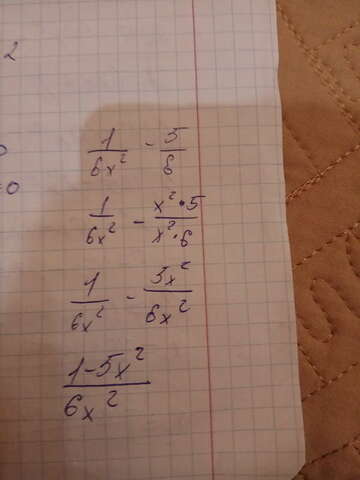 2
1/6x² - 5/6
0
0
1/6x² - x²·5/x²·6
1/6x² - 5x²/6x²
1-5x²/6x²